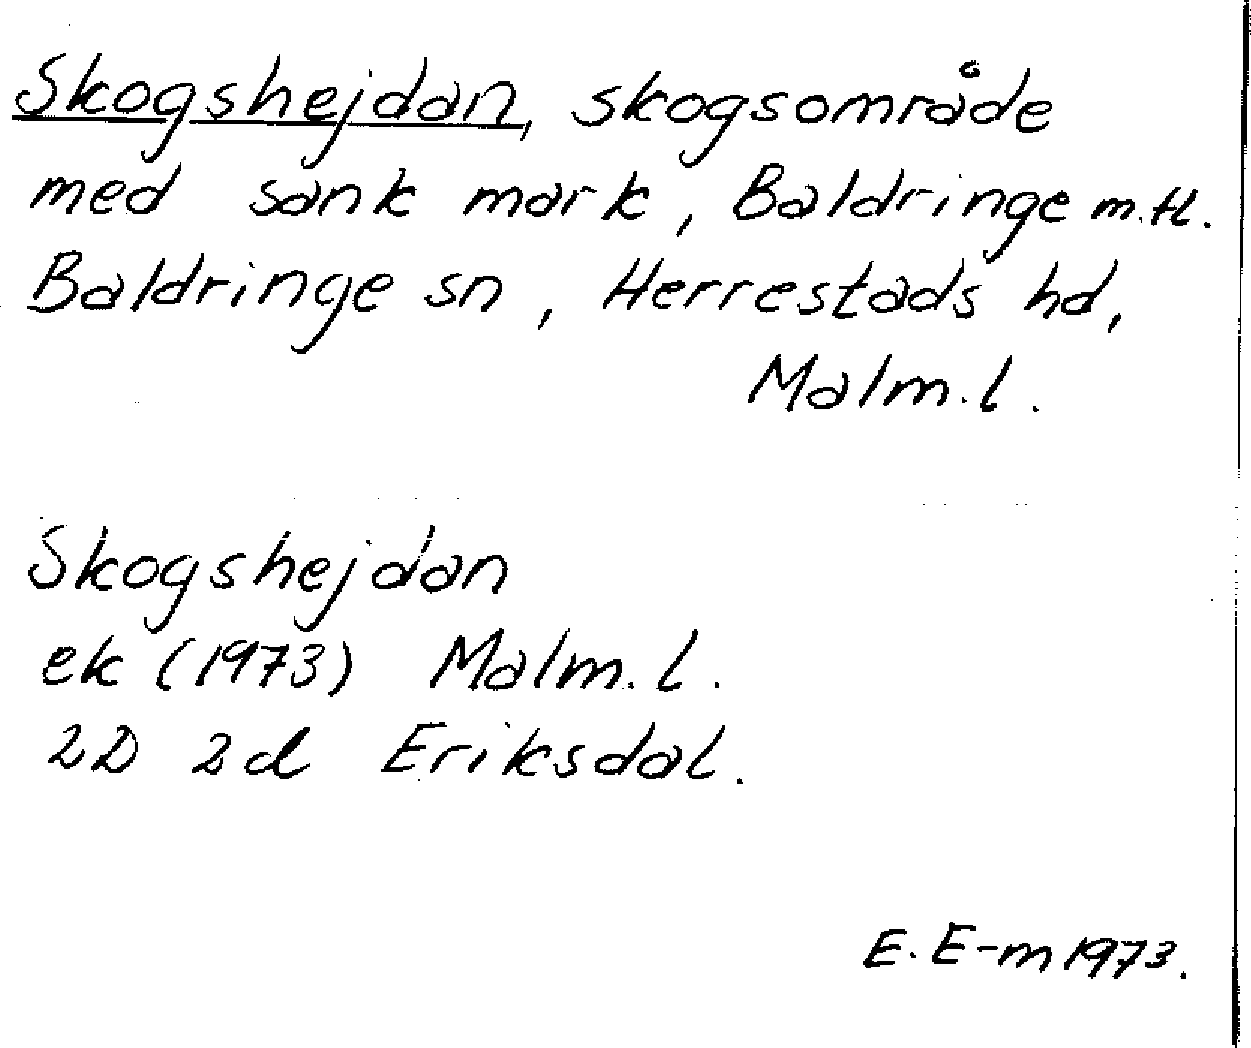 Skogshejdan, skogsområde
med sank mark, Baldringe m.fl.
Baldringe sn, Herrestads hd,
Malm.l.
Skogshejdan
ek (1973) Malm.l.
2D 2d Eriksdal.
E. E-m 1973.